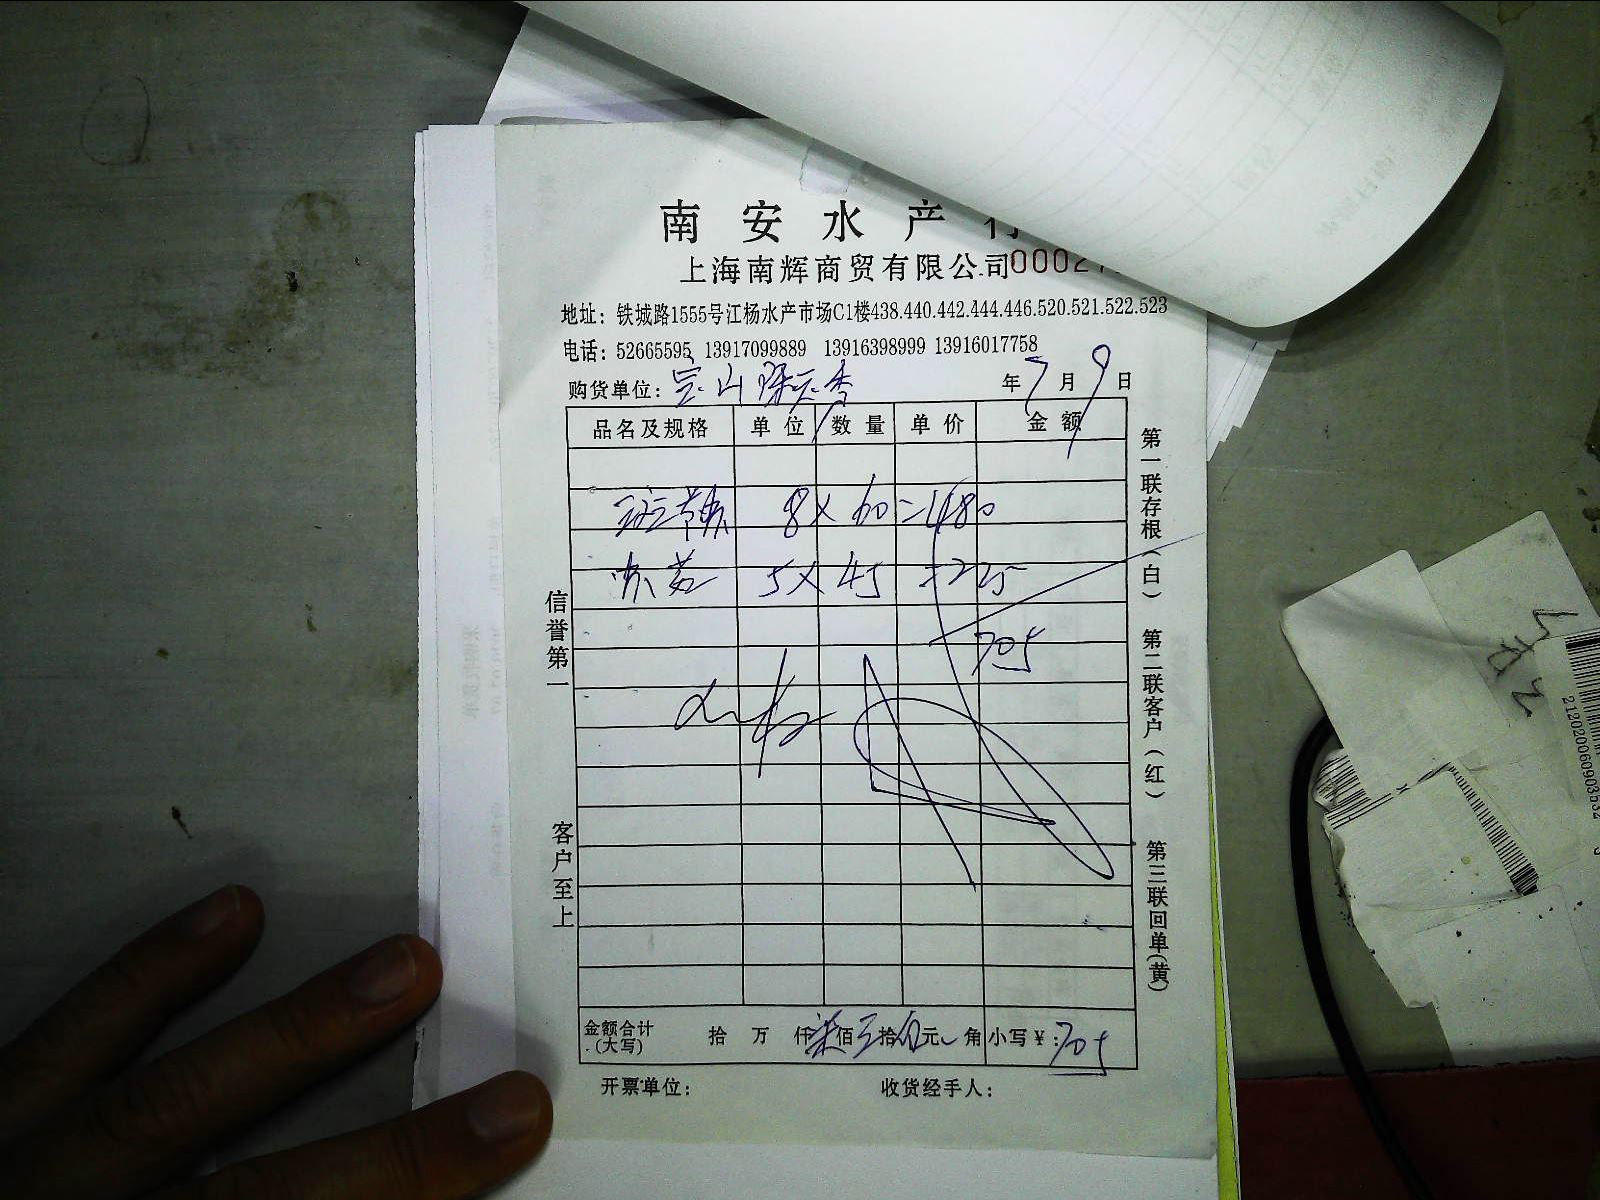 南安水产
上海南辉商贸有限公司
地址：铁城路1555号江杨水产市场C1楼438.440.442.444.446.520.521.522.523
电话：52665595 13917099889 13916398999 13916017758
购货单位：宝山
年7月9日
品名及规格 单位 数量 单价 金额
8 × 60 = 480
5 × 45 = 225
705
金额合计（大写） 拾 万 仟 柒佰 拾伍元 角 小写￥：705
开票单位： 收货经手人：
信誉第一
客户至上
第一联存根（白） 第二联客户（红） 第三联回单（黄）
212020060903532